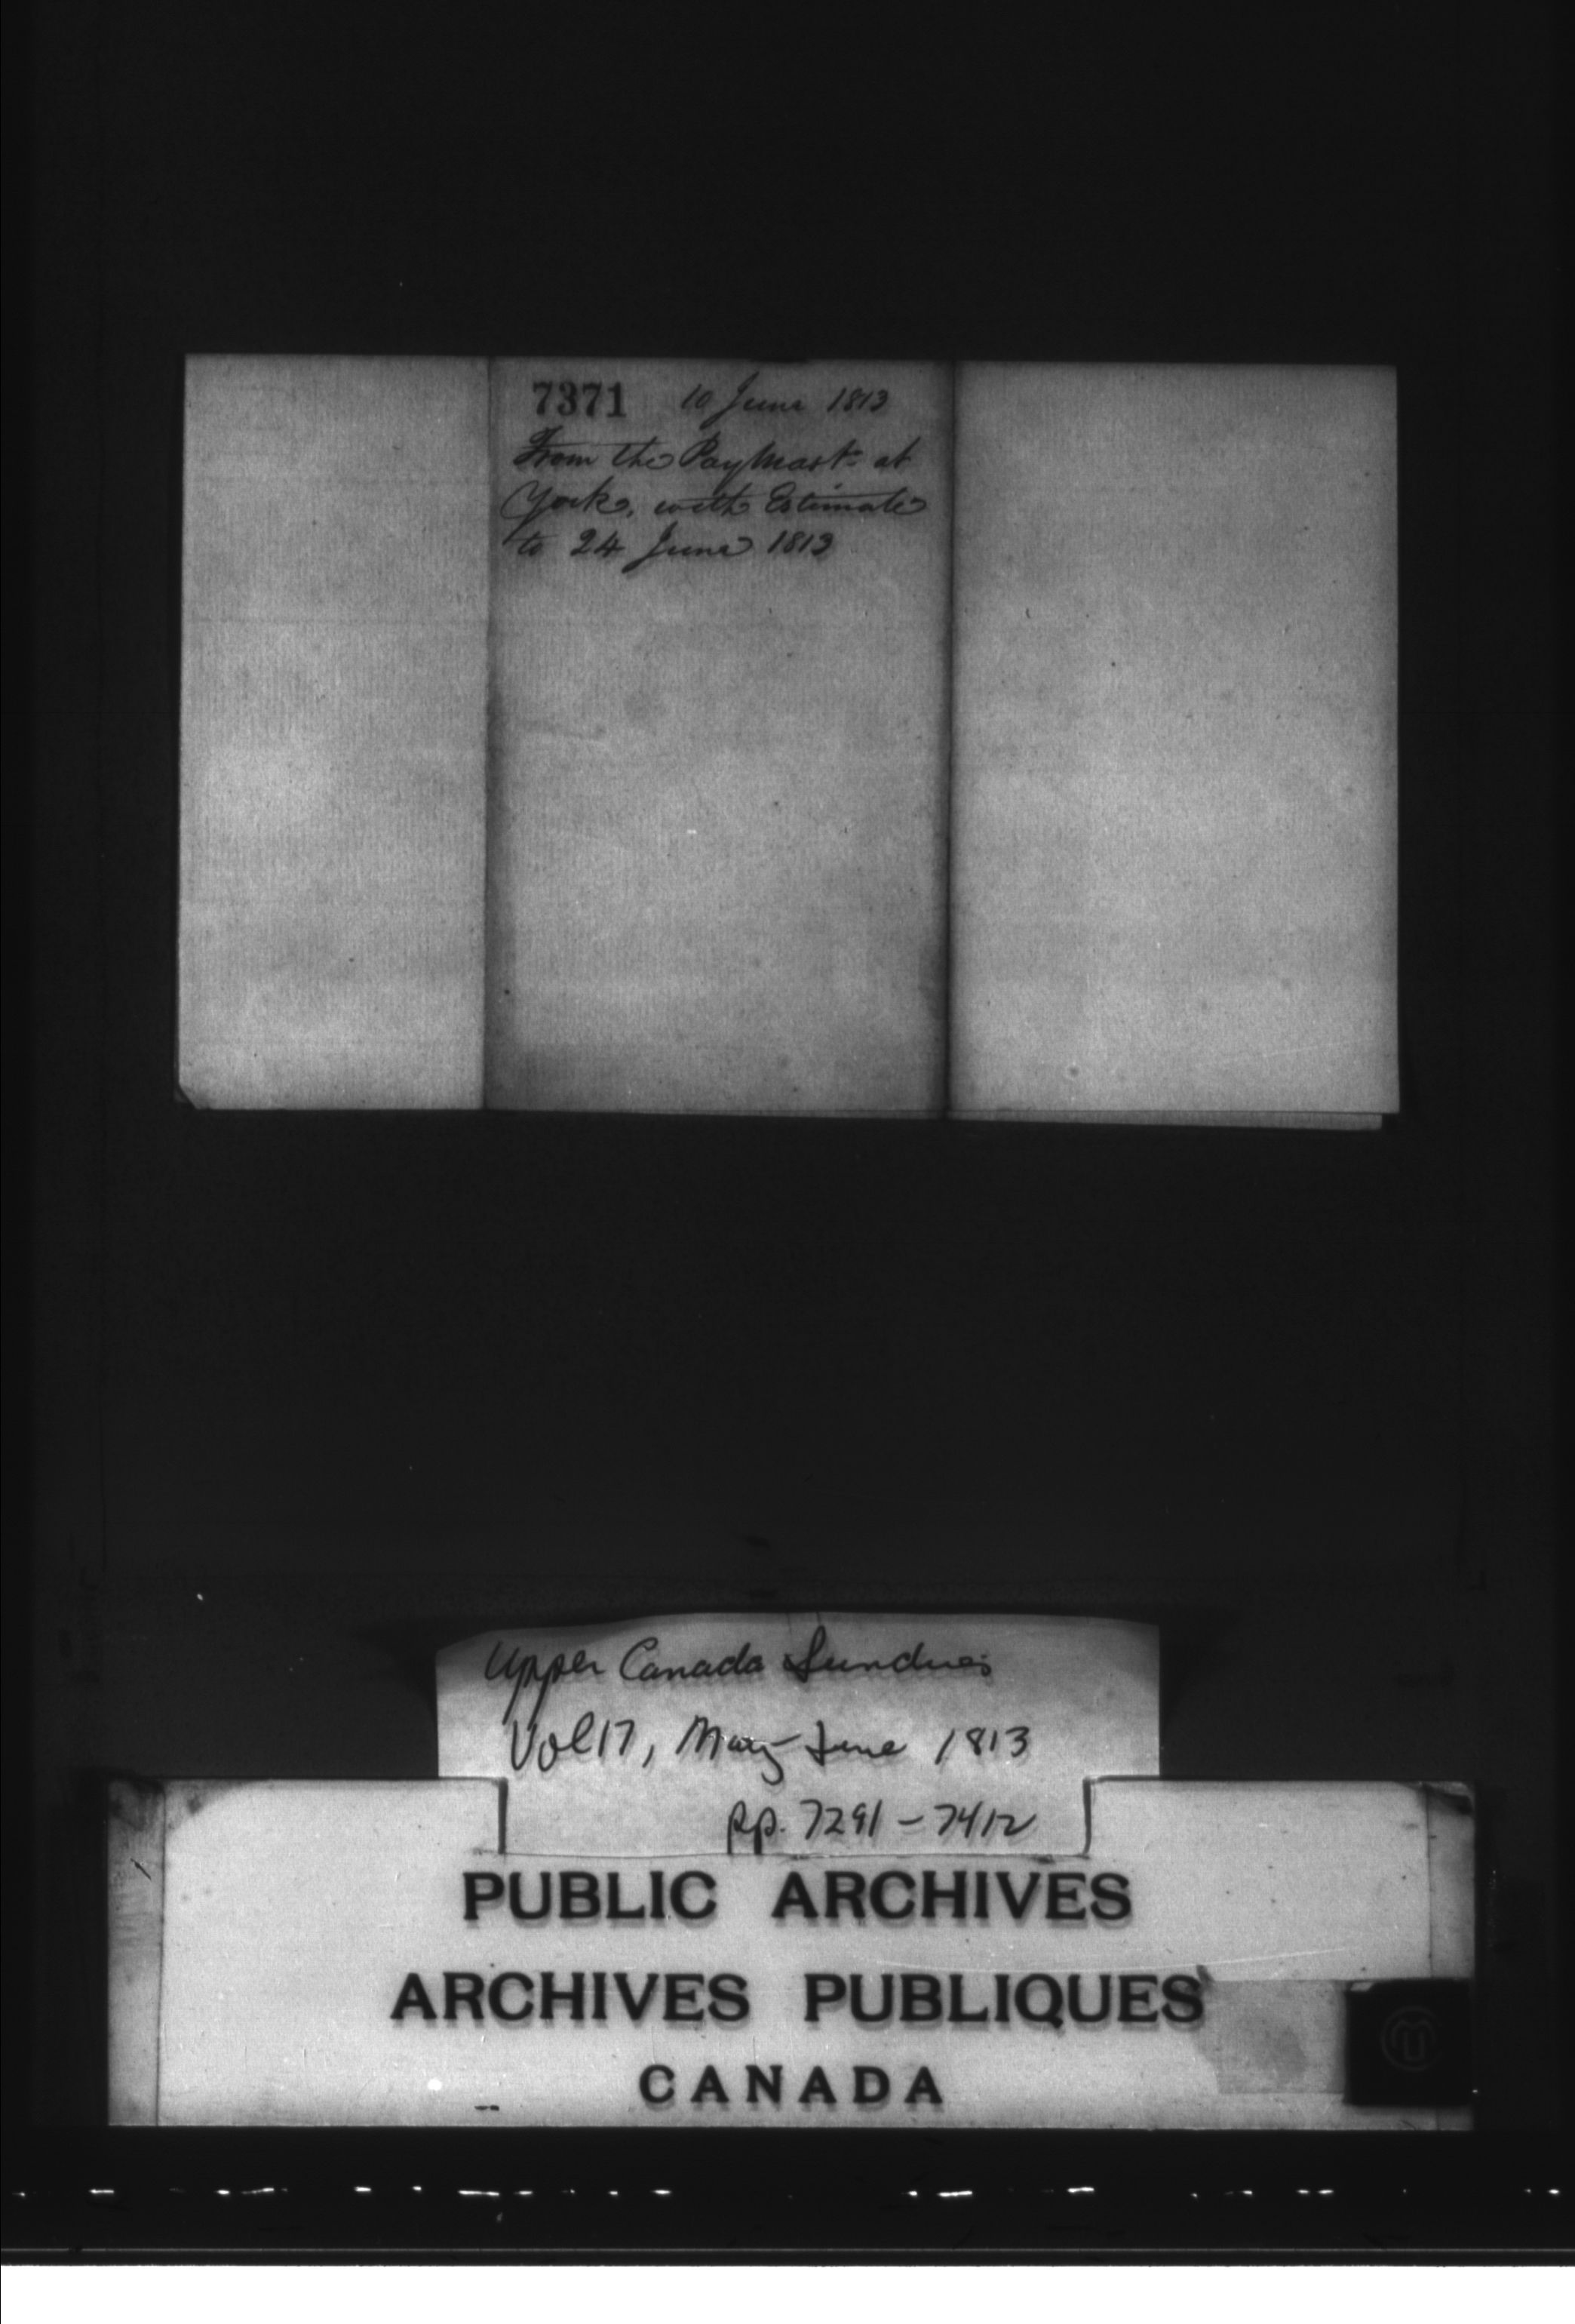 7371 10 June 1813
From the PayMastr at
York, with Estimate
to 24 June 1813
Upper Canada Sundries
Vol 17, May-June 1813
pp. 7291-7412
PUBLIC ARCHIVES
ARCHIVES PUBLIQUES
CANADA